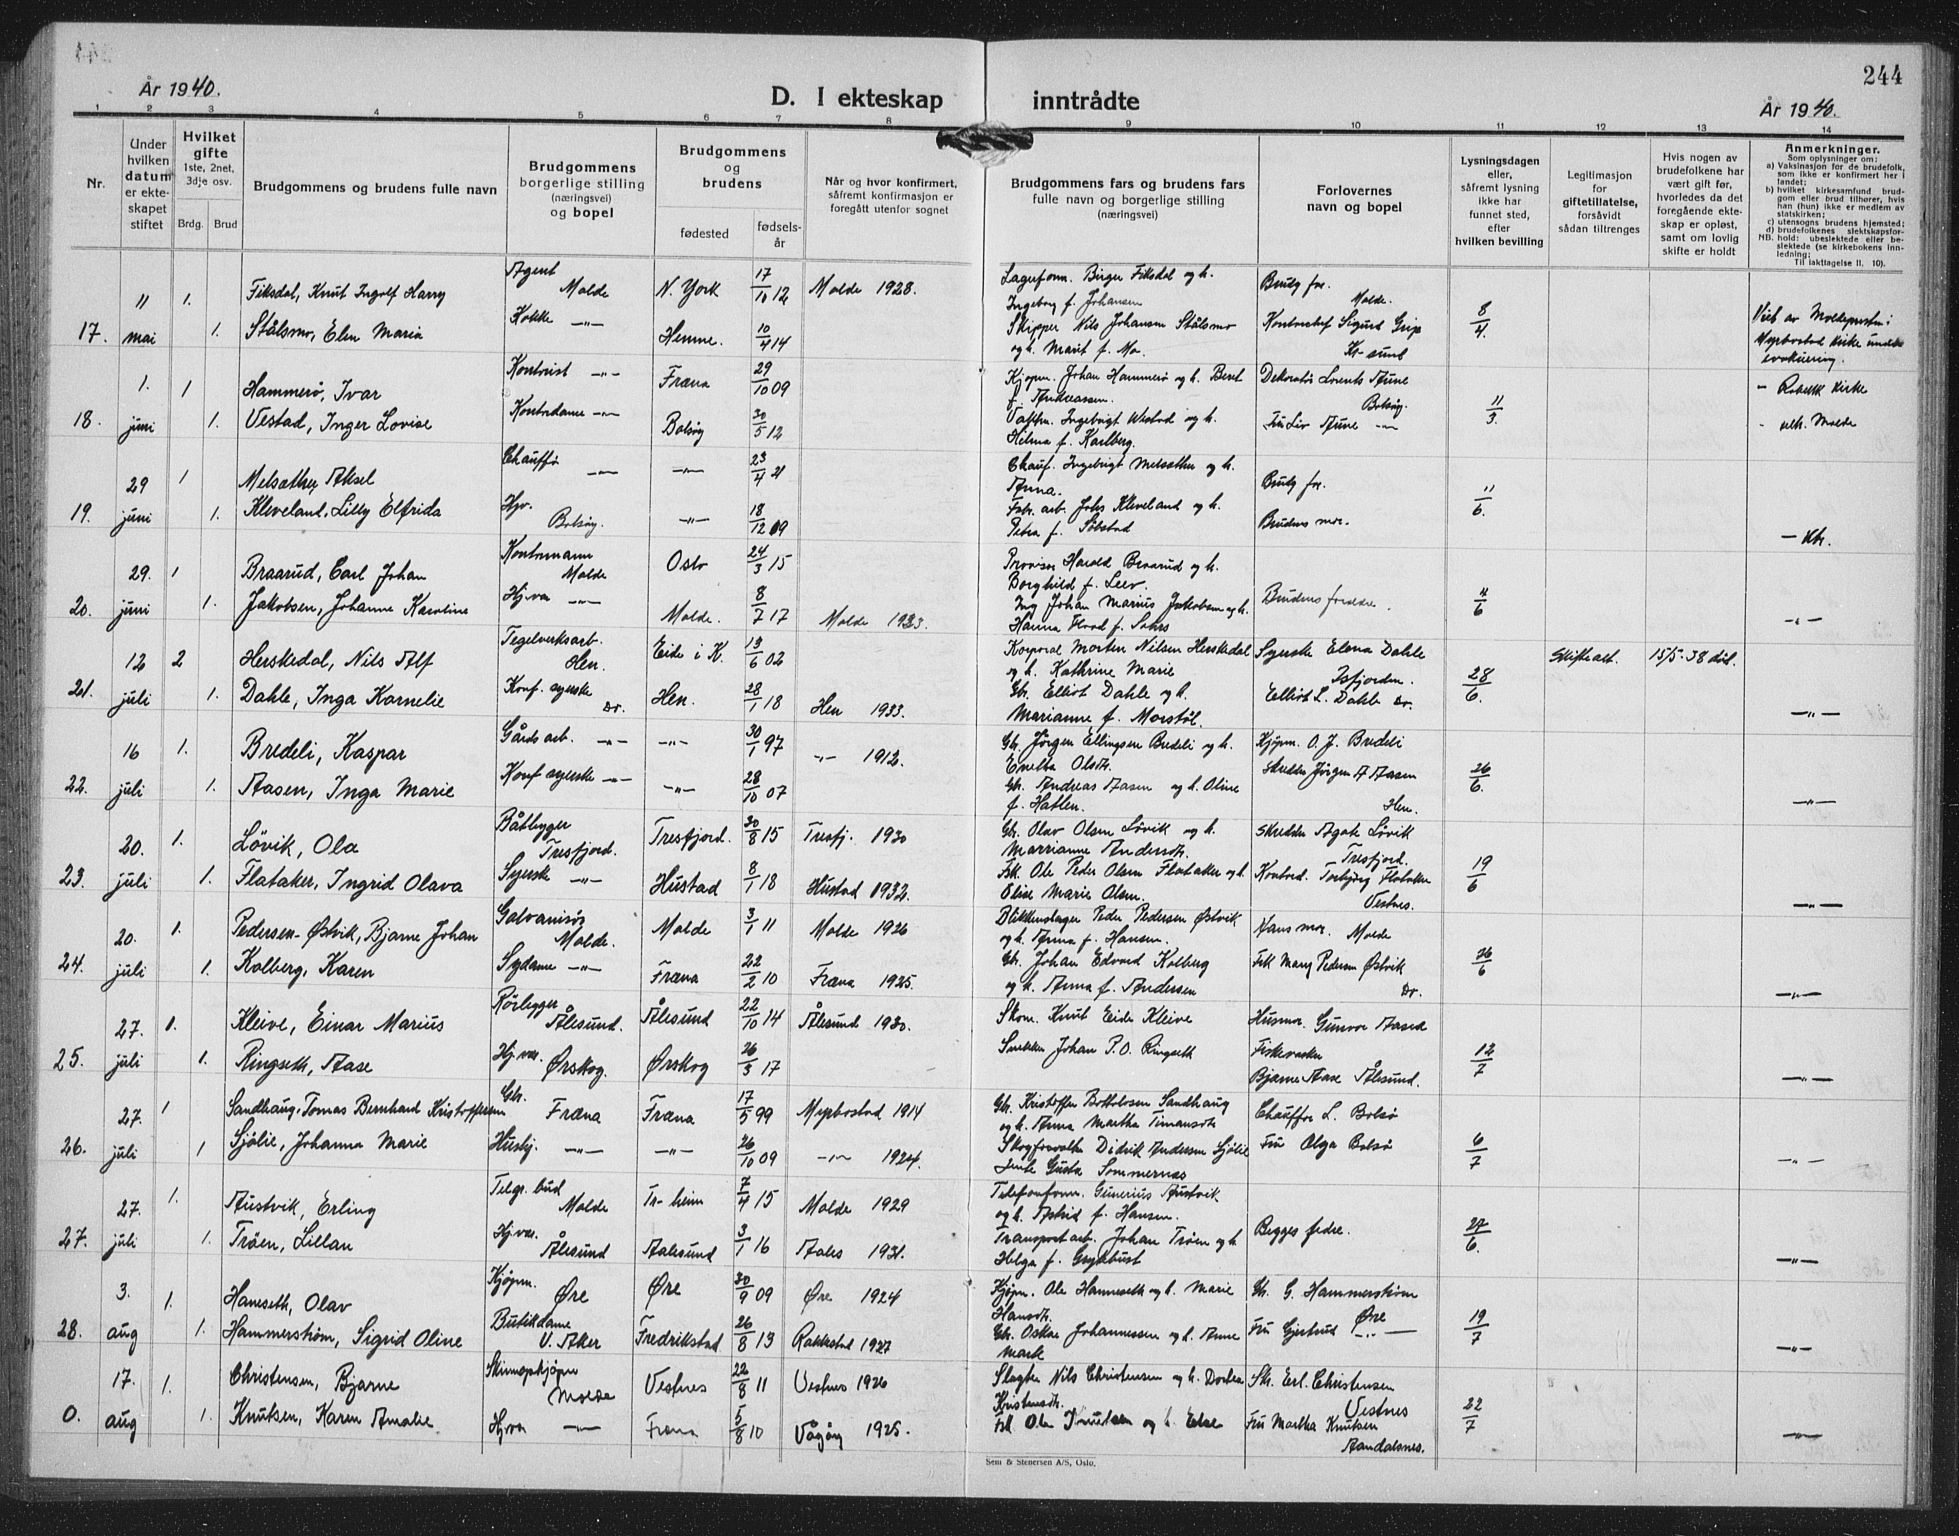 244
År 1940.
D. I ekteskap inntrådte
År 1940.
1 2 3 4 5 6 7 8 9 10 11 12 13 14
Nr.
Under hvilken datum er ekteskapet stiftet
Hvilket gifte 1ste, 2net, 3dje osv.
Brdg. Brud
Brudgommens og brudens fulle navn
Brudgommens borgerlige stilling (næringsvei) og bopel
Brudgommens og brudens
fødested fødselsår
Når og hvor konfirmert, såfremt konfirmasjon er foregått utenfor sognet
Brudgommens fars og brudens fars fulle navn og borgerlige stilling (næringsvei)
Forlovernes navn og bopel
Lysningsdagen eller, såfremt lysning ikke har funnet sted, efter hvilken bevilling
Legitimasjon for giftetillatelse, forsåvidt sådan tiltrenges
Hvis nogen av brudefolkene har vært gift før, hvorledes da det foregående ekteskap er opløst, samt om lovlig skifte er holdt
Anmerkninger.
Som oplysninger om:
a) Vaksinasjon for de brudefolk, som ikke er konfirmert her i landet;
b) hvilket kirkesamfund brudgom eller brud tilhører, hvis han (hun) ikke er medlem av statskirken;
c) utensogns brudens hjemsted;
d) brudefolkenes slektskapsforhold: ubeslektede eller beslektede (se kirkebokens innledning;
NB. Til iakttagelse II. 10).
11 1. Fiksdal, Knut Ingolf Harry Agent Molde N. York 17/10 12 Molde 1928. Lagerform. Birger Fiksdal og h. Ingeborg f. Johansen Brudg for. Molde. 8/4
17. mai 1. Stålsmo, Elen Maria Kokke -"- Hemne. 10/4 14 Skipper Nils Johansen Stålsmo og h. Marit f. Mo. Kontorchef Sigurd Grip Kr-sund
1. 1 Hammerø, Ivar Kontorist -"- Fræna 29/10 09 Kjøpm. Johan Hammerø og h. Beret f. Andreassen. Dekoratør Lorents Aune Bolsøy. 11/3. - Røbekk kirke
18. juni 1. Vestad, Inger Lovise Kontordame -"- Bolsøy 30/5 12 Ingebrigt Vestad og h. Hilma f. Karlberg. Fru Liv Aune -"- Molde
29 1 Melsæther, Aksel Chauffø -"- -"- 23/4 21 Chauf. Ingebrigt Melsæther og h. Anna. Brudg for. 11/6.
19. juni 1. Kleveland, Lilly Elfrida Hjv. Bolsøy. -"- 18/12 09 Fabr. arb. Johs Kleveland og h. Petra f. Solstad Brudens mor.
29. 1 Braarud, Carl Johan Kontormann Molde Oslo 24/3 15 Harald Braarud og h. Borghild f. Leev. Brudens foreldre. 4/6
20. juni 1. Jakobsen, Johanne Karoline Hj.va -"- Molde. 8/7 17 Molde 1933. Ing Johan Marius Jakobsen og h. Hanna Flood f. Sohrs -"-
12 2 Herskedal, Nils Alf Tegelverksarb. Hen. Eide i K. 13/6 02 Korporal Morten Nilsen Herskedal og h. Kathrine Marie Syerske Elena Dahle Isfjorden. 28/6. Skifteatt. 15/5-38 død.
21. juli 1. Dahle, Inga Karnelie Konf. syerske Do. Hen. 28/1 18 Hen 1933. Gbr. Elliot Dahle og h. Marianne f. Morstøl. Elliot L. Dahle Do. -"-
16 1. Bredeli, Kaspar Gårdsarb. -"- -"- 30/1 97 -"- 1912. Gbr. Jørgen Ellingsen Bredeli og h. Kjøpm. O. J. Bredeli 26/6.
22. juli 1. Aasen, Inga Marie Konf syerske -"- -"- 28/10 07 Gbr. Andreas Aasen og h. Oline f. Hatlen. Skredder Jørgen A Aasen Hen. -"-
20. 1. Løvik, Ola Båtbygger Tresfjord. Tresfjord. 30/8 15 Tresfj. 1930 Gbr. Olav Olsen Løvik og h. Marrianne Andersdtr. Skredder Agate Løvik Tresfjord. 19/6
23. juli 1. Flataker, Ingrid Olava Syerske -"- Hustad 8/1 18 Hustad 1932. Fsk. Ole Peder Olsen Flataker og h. Elise Marie Olsen. Kontord. Torbjørg Flataker Vestnes. -"-
20. 1. Pedersen-Østvik, Bjarne Johan Galvanisør Molde. Molde 3/1 11 Molde 1926 Blikkenslager Peder Pedersen Østvik og h. Anna f. Hansen. Hans mor. Molde 26/6
24. juli 1. Kolberg, Karen Sydame -"- Fræna 22/2 10 Fræna 1925. Gbr. Johan Edvard Kolberg og h. Anna f. Andersen Frk Mary Pedersen Østvik Do. -"-
27. 1. Kleive, Einar Marius Rørlegger Ålesund. Ålesund 22/10 14 Ålesund 1930. Skom. Knut Eider Kleive Husmor. Gunvor Aased 12/7
25. juli 1. Ringseth, Aase Hj.vær. Ørskog. Ørskog 26/3 17 Snekker Johan P.O. Ringseth Bjarne Aase Ålesund. -"-
27. 1 Sandhaug, Tomas Bernhard Kristoffersen Gbr. Fræna Fræna 17/5 99 Myrbostad 1914 Gbr. Kristoffer Sandhaug og h. Anna Martha Timansdtr Chauffør L. Bolsø 6/7
26. juli 1 Sjølie, Johanna Marie Hushj. -"- -"- 26/10 09 -"- 1924. Skogforvalter Didrik Andersen Sjølie Gusta Sommernes Fru Olga Bolsø -"-
27. 1. Austvik, Erling Telgr. bud Molde Tr-heim 7/4 15 Molde 1929 Telefonform. Gunerius Austvik og h. Astrid f. Hansen. Begges fedre. 27/6.
27. juli 1. Trøen, Lillan Hj.vær. Ålesund Aalesund 3/1 16 Aales 1931. Transportarb. Johan Trøen og h Helga f. Grytbust -"-
3. 1. Hanseth, Olav Kjøpm. Øre Øre 30/9 09 Øre 1924 Kjøpm. Ole Hanneseth og h. Marie Hansdtr. Gbr. G. Hammerstrøm Øre 19/7
28. aug 1. Hammerstrøm, Sigrid Oline Butikdame V. Aker Fredrikstad 26/8 13 Rakkestad 1927 Gbr. Oskar Johannessen og h. Anne Mark Fru Gjertrud -"- -"-
17. 1. Christensen, Bjarne Skinnopkjøper Molde Vestnes 22/8 11 Vestnes 1926 Slagter Nils Christensen og h. Dortea Kristensdtr. Sk. Erl. Christensen Vestnes 22/7
0. aug 1. Knutsen, Karen Amalie Hjvær -"- Fræna 5/8 10 Vågøy 1925. Fsk Ole Knutsen og h. Else Fru Martha Knutsen Aandalsnes. -"-
Sem & Stenersen A/S, Oslo.